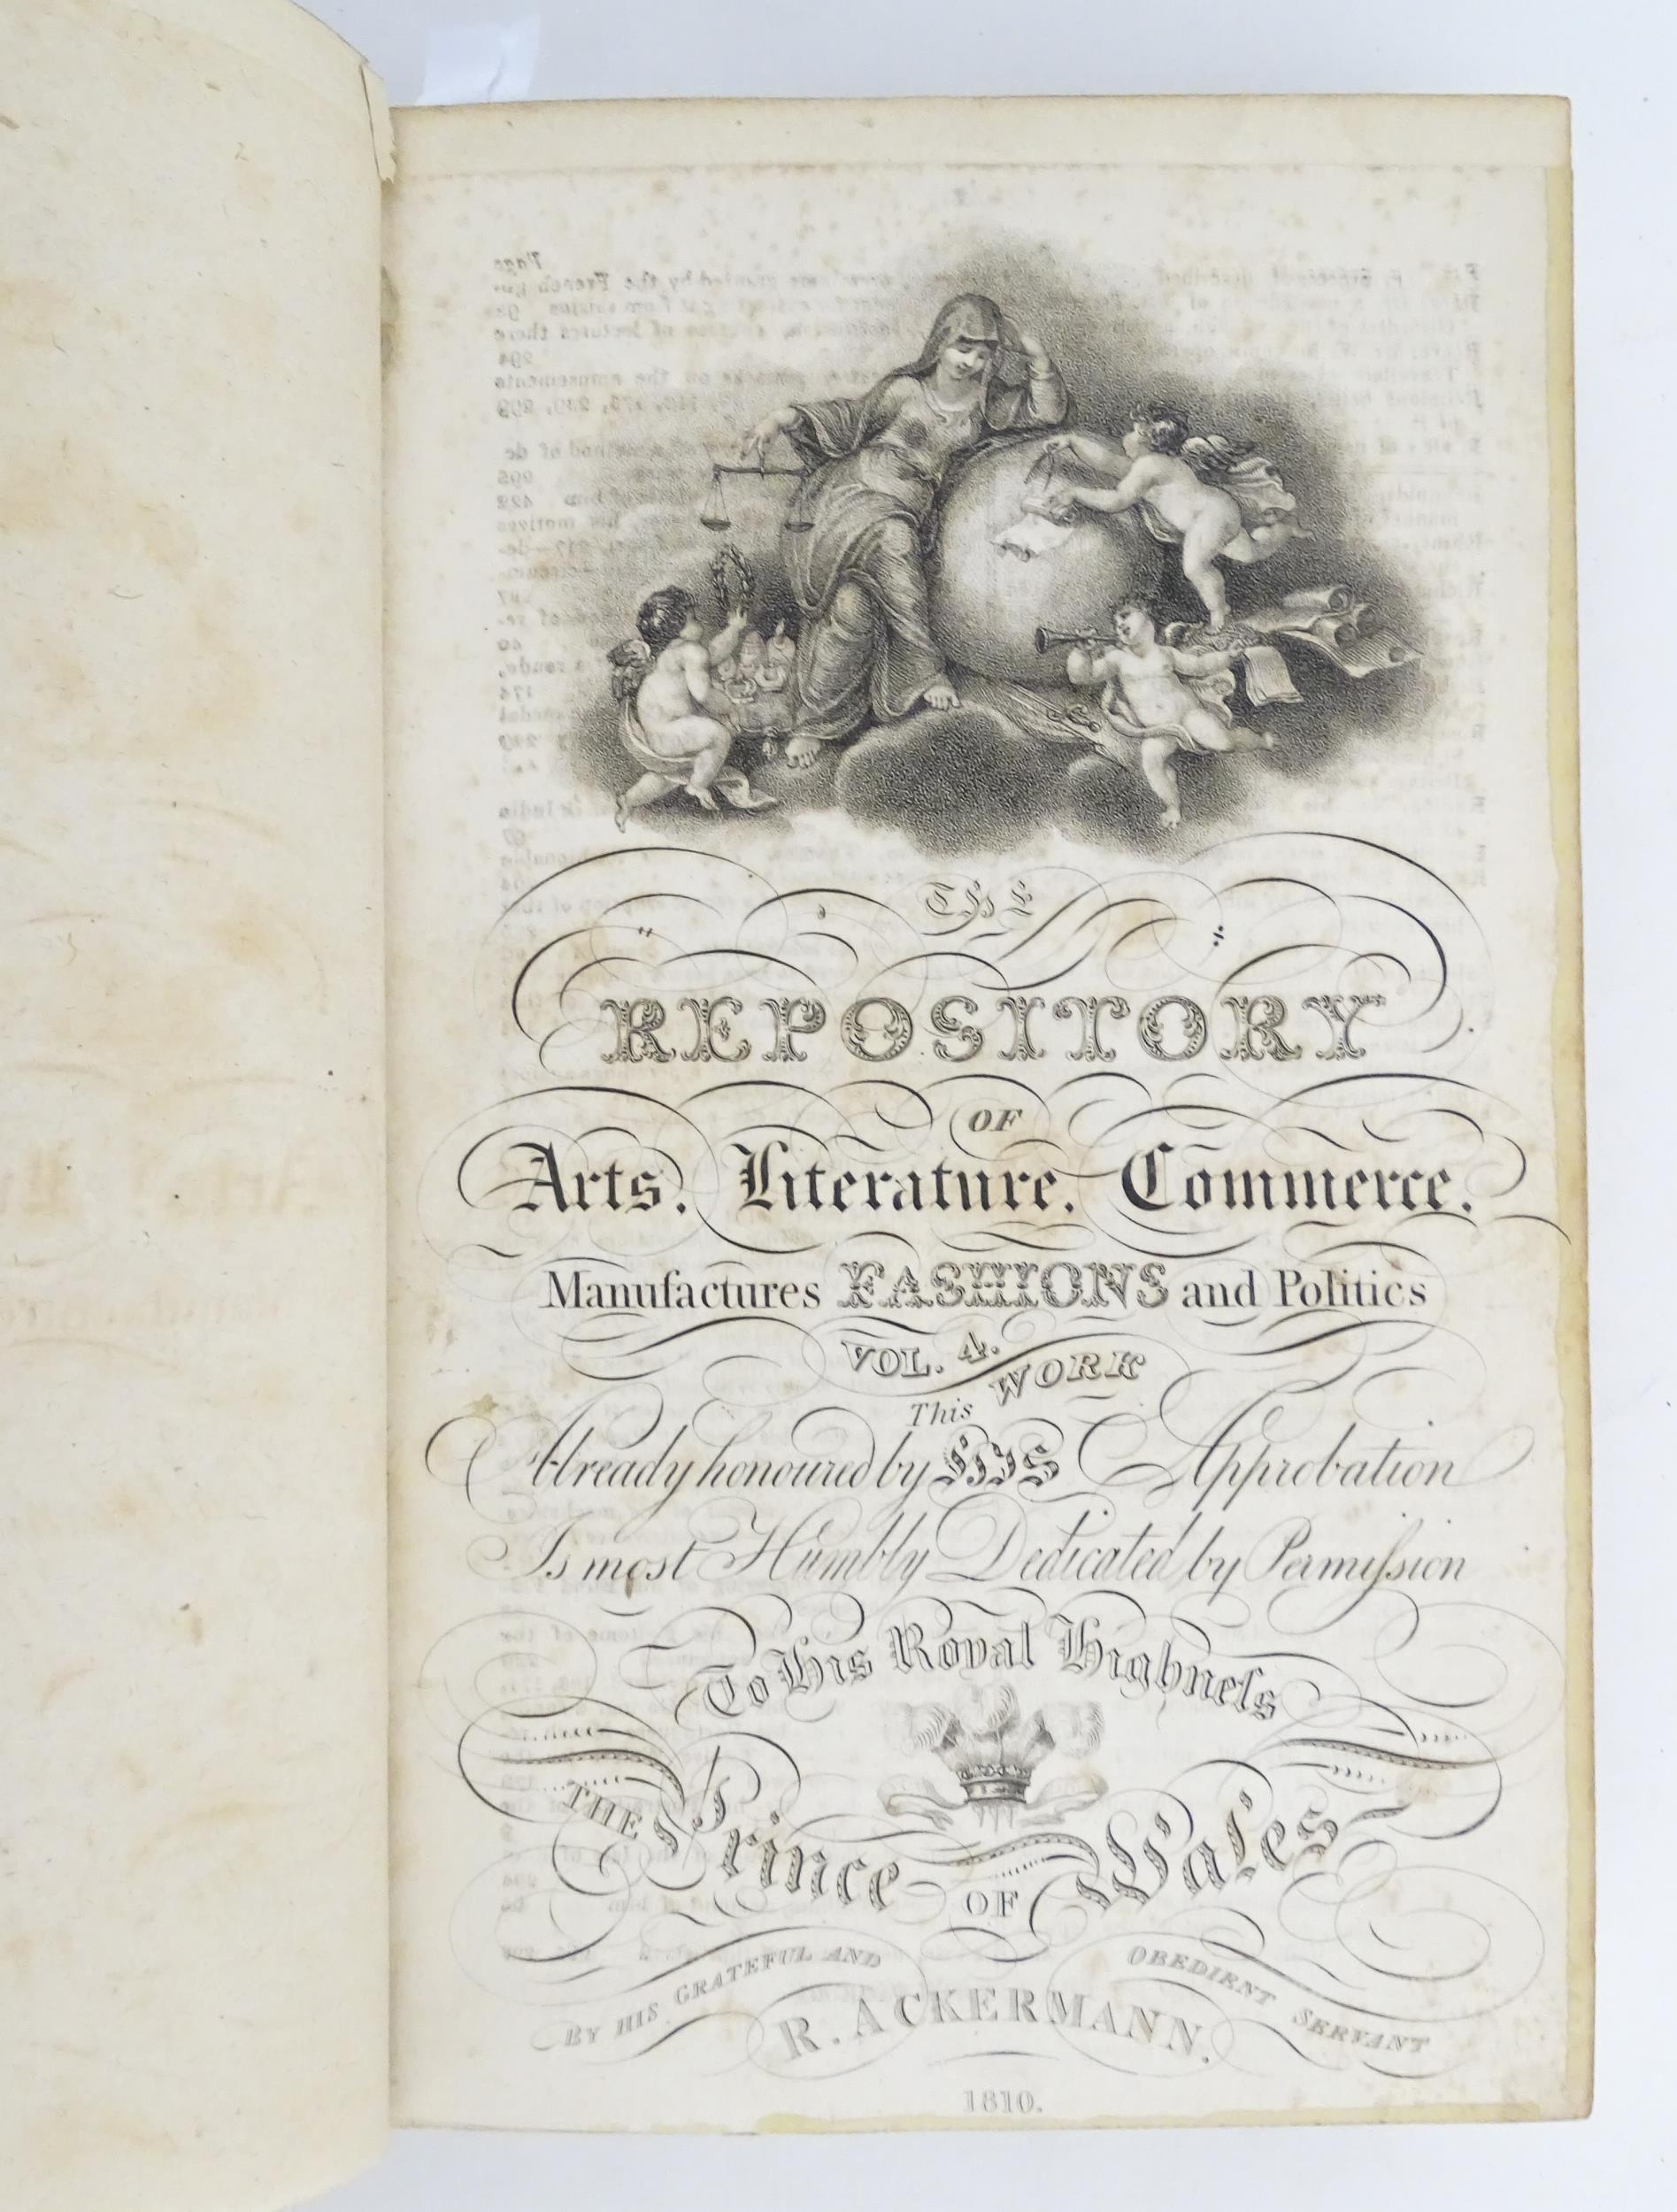 THE
REPOSITORY
OF
Arts, Literature, Commerce,
Manufactures FASHIONS and Politics
VOL. 4.
This WORK
Already honoured by HIS Approbation
Is most Humbly Dedicated by Permiſsion
To His Royal Highneſs
THE Prince OF Wales
BY HIS GRATEFUL AND OBEDIENT SERVANT
R. ACKERMANN.
1810.